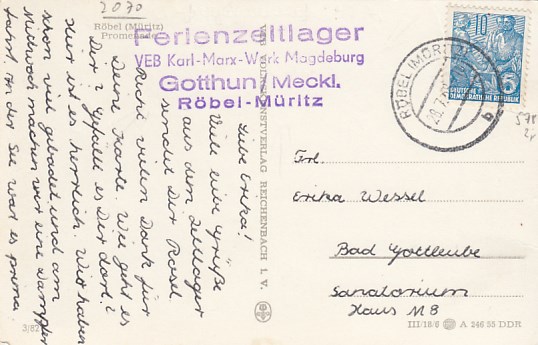 2070
Röbel (Müritz)
Promenade
Ferienzeltlager
VEB Karl-Marx-Werk Magdeburg
Gotthun / Meckl.
Röbel-Müritz
Liebe Erika!
Viele liebe Grüße
aus dem Zeltlager
sendet Dir Rosel
Recht vielen Dank für
Deine Karte. Wie geht es
Dir? Gefällt es Dir dort?
Hier ist es herrlich. Wir haben
schon viel gebadet und am
Mittwoch machen wir eine Dampfer
fahrt. An der See war es prima
3/82
REICHENBACH I. V.
RÖBEL (MÜRITZ)
b
10
5
DEUTSCHE
DEMOKRATISCHE REPUBLIK
Frl.
Erika Wessel
Bad Gottleuba
Sanatorium
Haus M8
III/18/6 A 246 55 DDR